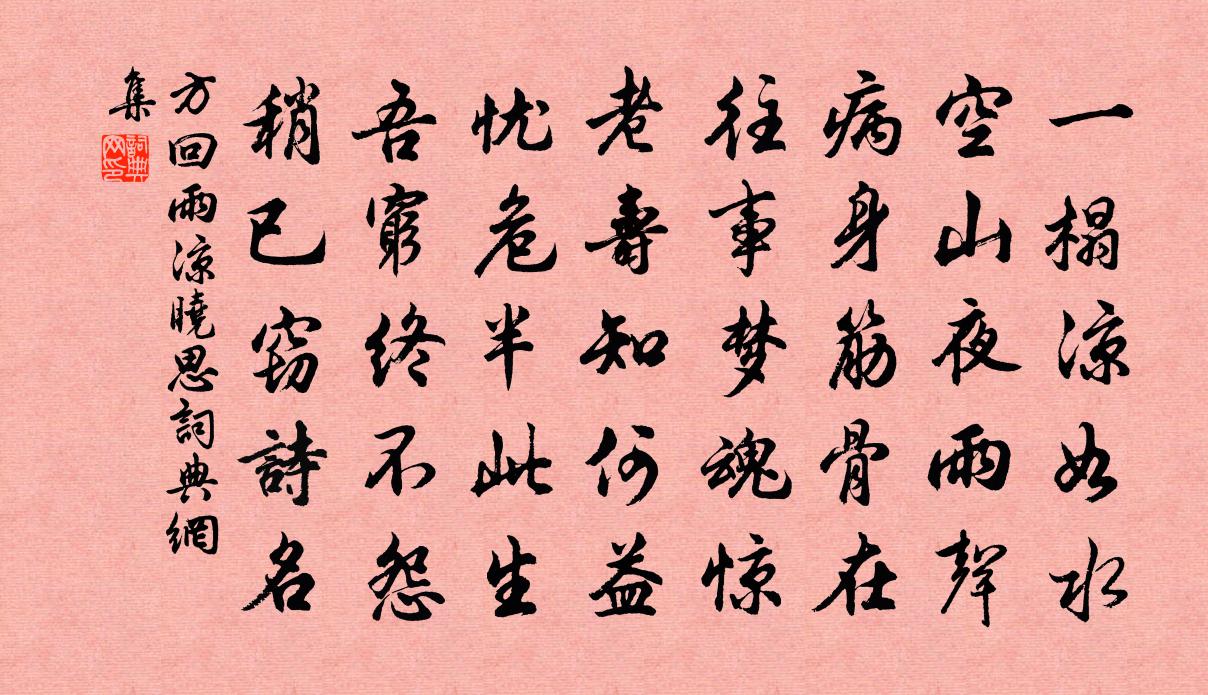 一榻凉如水
空山夜雨聲
病身筋骨在
往事梦魂惊
老壽知何益
忧危半此生
吾窮終不怨
稍已窃詩名
方回雨凉曉思詞典網
集
詞典
网印